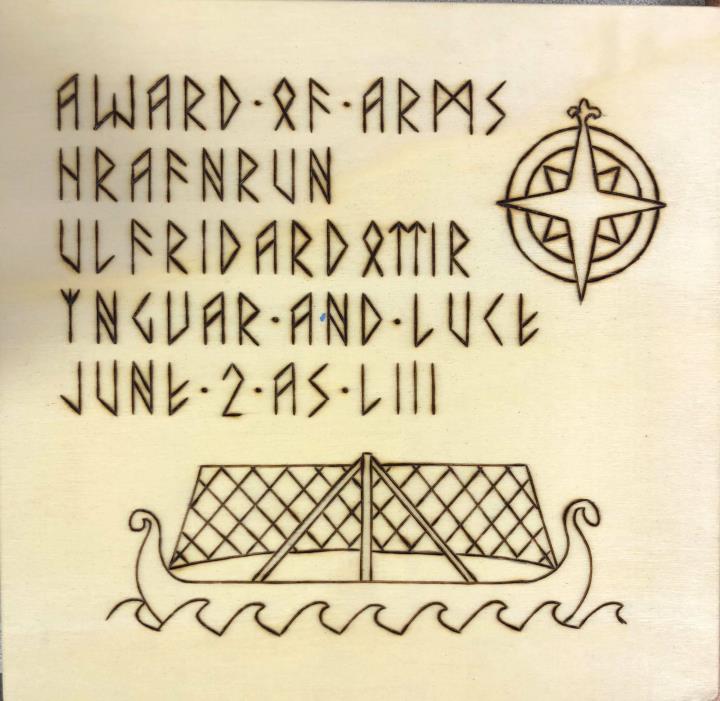 AWARD·OF·ARMS
HRAFNRUN
ULFRIDARDOTTIR
YNGVAR·AND·LUCE
JUNE·2·AS·LIII